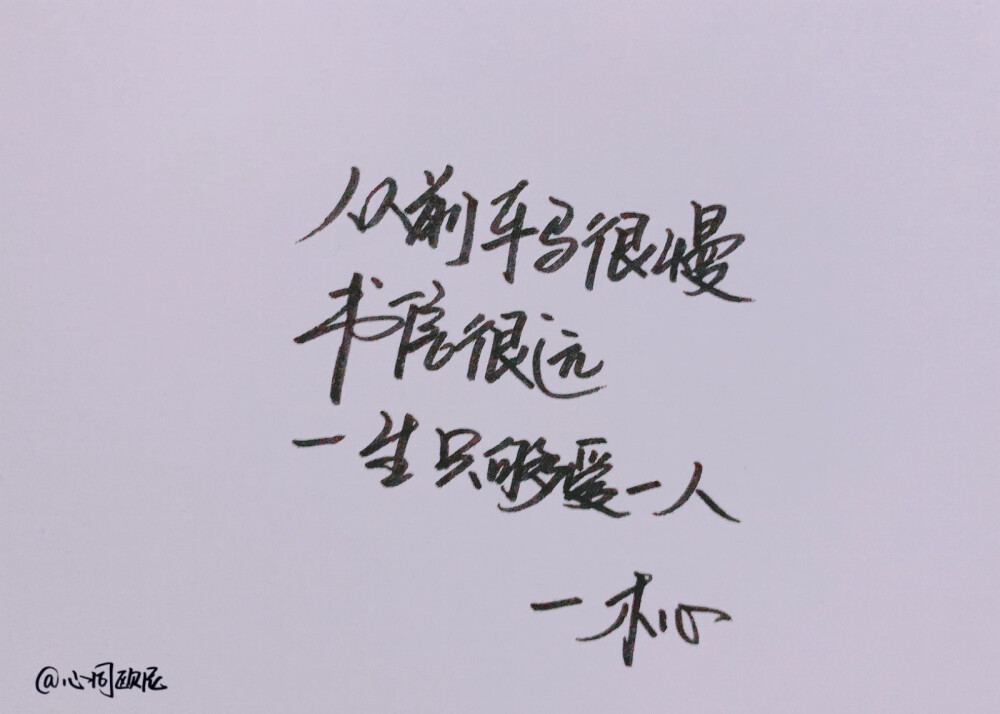 从前车马很慢
书信很远
一生只够爱一人
一木心
@心同欧尼